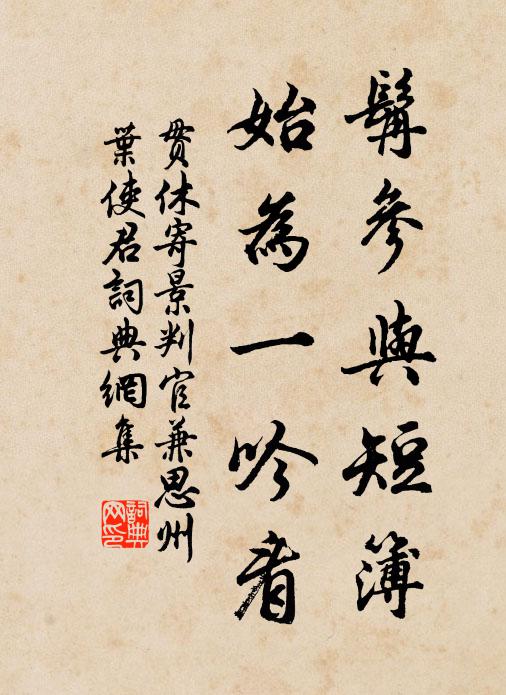 髯參與短簿
始為一吟看
貫休寄景判官兼思州
葉使君詞典網集
詞典网印